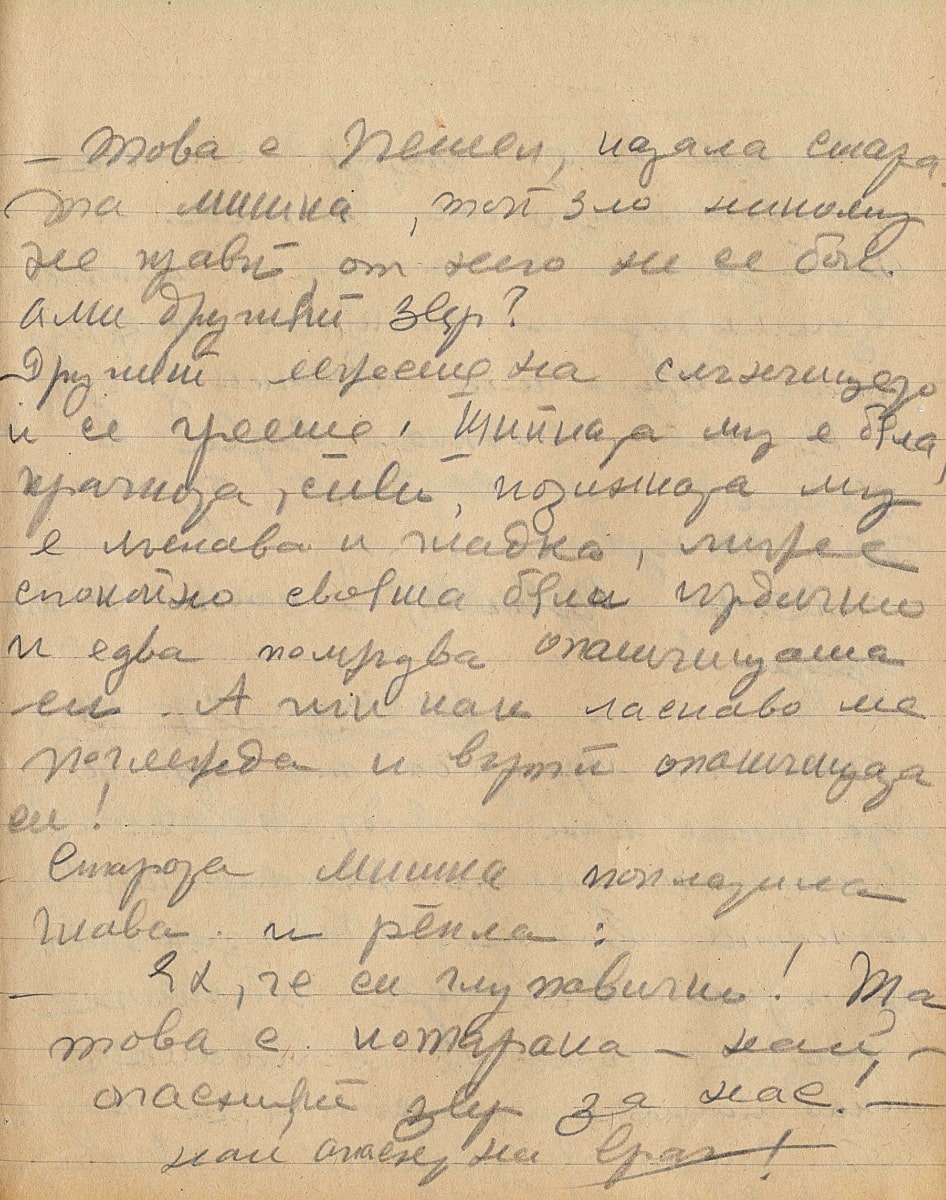 – Това е Петел, казала стара
та мишка, той зло никому
не прави, от него не се бой.
Ами другият звяр?
Другият лежеше на слънчицето
и се грееше. Шийката му е бяла,
крачката сиви, козината му
е лъскава и гладка, лиже
спокойно своята бяла гърдичка
и едва помръдва опашчицата
си. А пък как ласкаво ме
погледва и върти опашчицата
си!
Старата мишка поклатила
глава и рекла:
– Ех, че си глупавичка! Та
това е котарака – най –
опасният звяр за нас! –
най опасния враг!